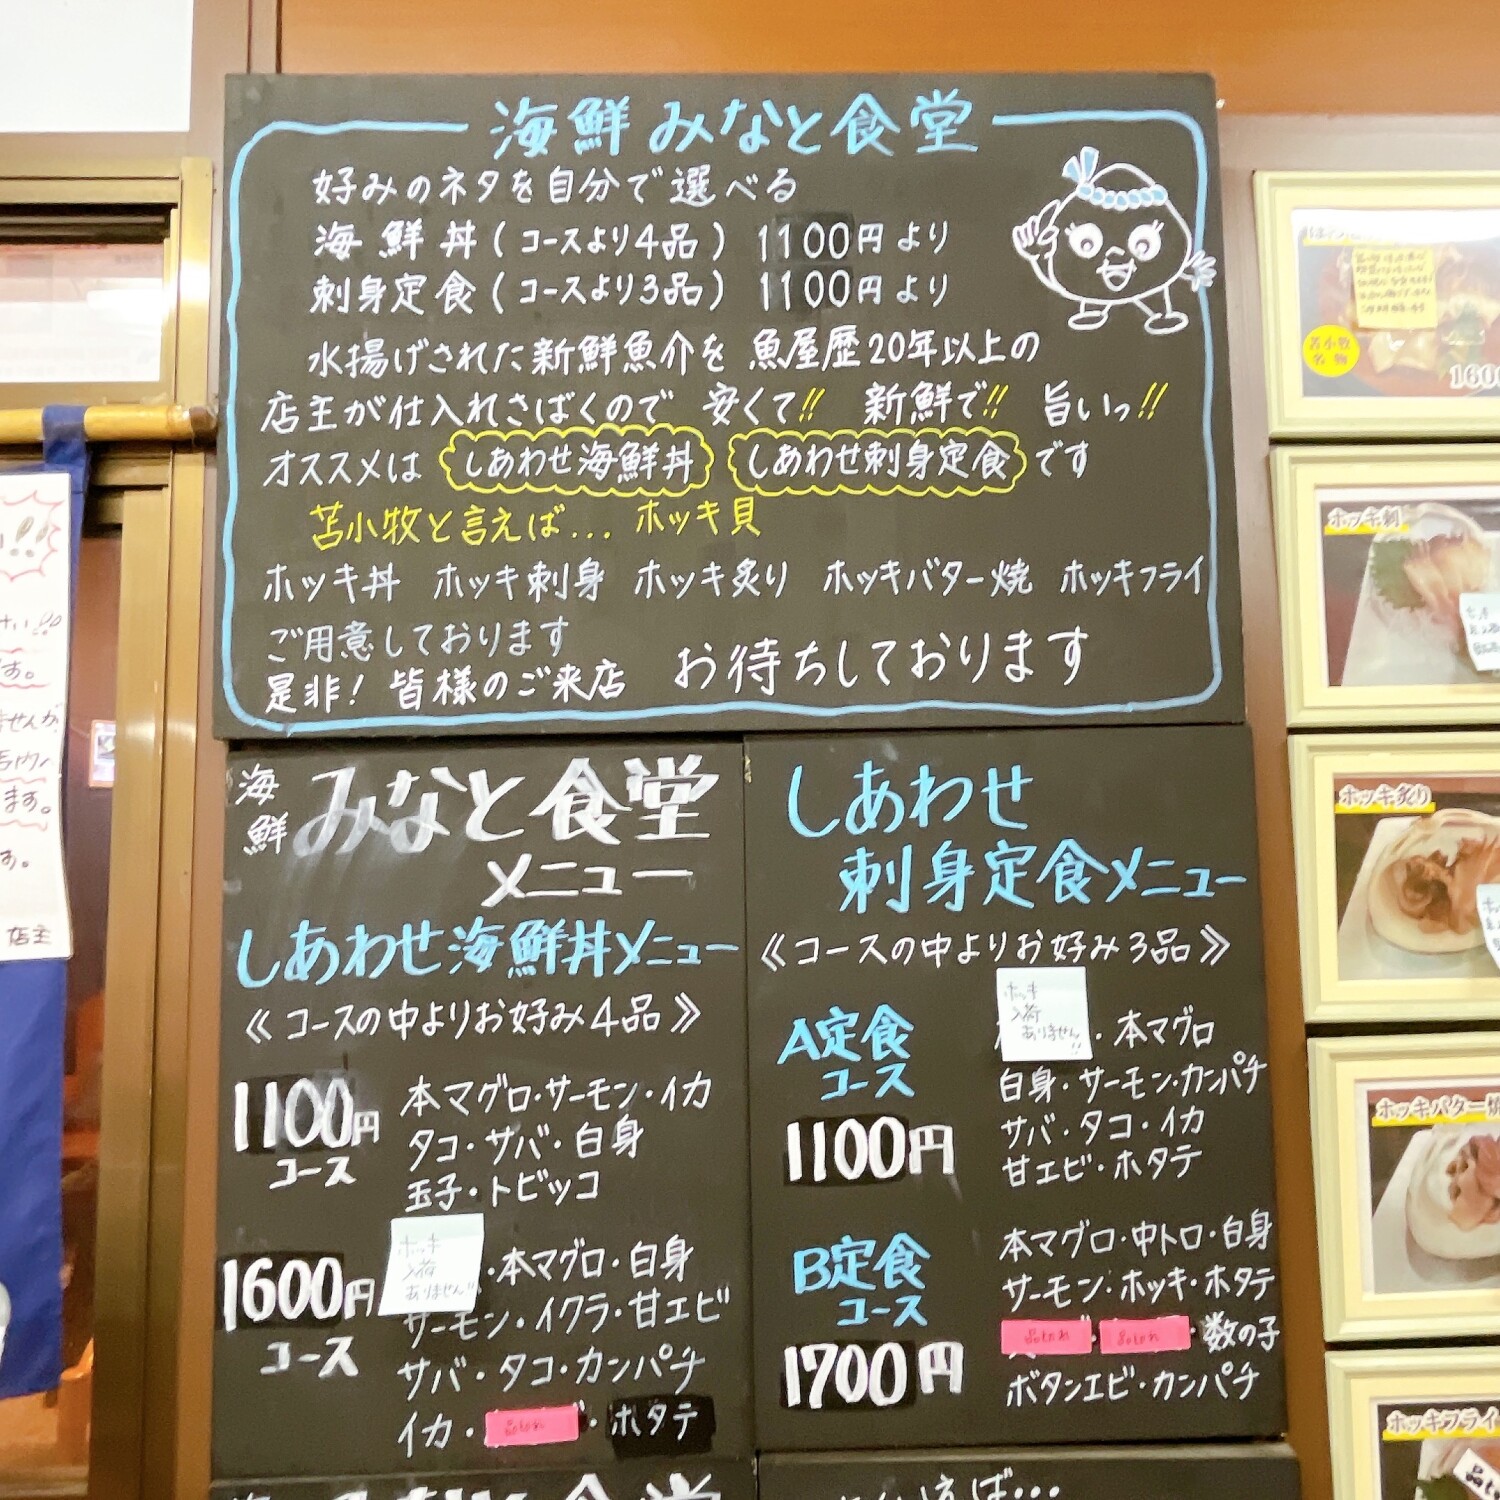 海鮮 みなと食堂
好みのネタを自分で選べる
海鮮丼(コースより4品) 1100円より
刺身定食(コースより3品) 1100円より
水揚げされた新鮮魚介を 魚屋歴20年以上の
店主が仕入れさばくので 安くて!! 新鮮で!! 旨いっ!!
オススメは しあわせ海鮮丼 しあわせ刺身定食 です
苫小牧と言えば... ホッキ貝
ホッキ丼 ホッキ刺身 ホッキ炙り ホッキバター焼 ホッキフライ
ご用意しております
是非! 皆様のご来店 お待ちしております
海鮮 みなと食堂
メニュー
しあわせ海鮮丼メニュー
《コースの中よりお好み4品》
1100円
コース
本マグロ・サーモン・イカ
タコ・サバ・白身
玉子・トビッコ
1600円
コース
ホッキ
入荷
ありません!!
・本マグロ・白身
サーモン・イクラ・甘エビ
サバ・タコ・カンパチ
イカ・品切れ・ホタテ
しあわせ
刺身定食メニュー
《コースの中よりお好み3品》
A定食
コース
1100円
ホッキ
入荷
ありません!!
・本マグロ
白身・サーモン・カンパチ
サバ・タコ・イカ
甘エビ・ホタテ
B定食
コース
1700円
本マグロ・中トロ・白身
サーモン・ホッキ・ホタテ
品切れ・品切れ・数の子
ボタンエビ・カンパチ
苫小牧
名物
ホッキ刺
ホッキ炙り
ホッキバター焼
ホッキフライ
店主